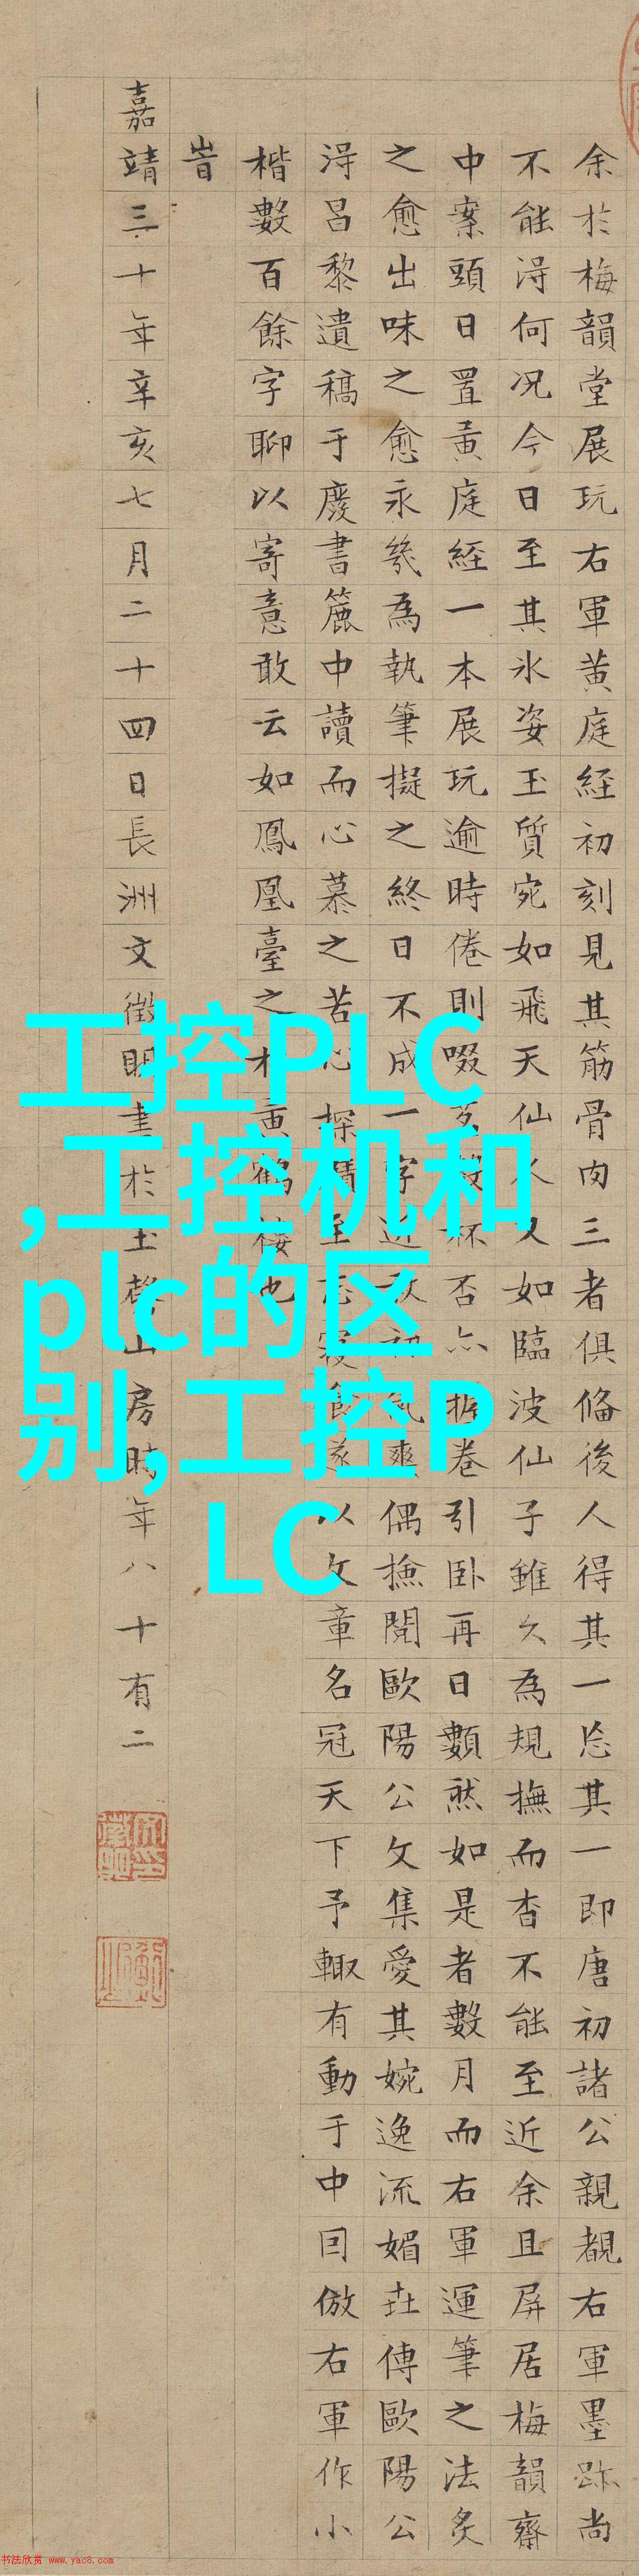 余於梅韻堂展玩右軍黄庭經初刻見其筋骨肉三者俱偹後人得其一忘其一即唐初諸公親覩右軍墨跡尚
不能淂何况今日至其氷姿玉質宛如飛天仙人又如臨波仙子雖久為規撫而杳不能至近余且屏居梅韻齋
中案頭日置黄庭經一本展玩逾時倦則啜茗數杯否亦掀卷引卧再日數然如是者數月而右軍運筆之法炙
之愈出味之愈永幾為執筆擬之終日不成一字近秋初氣爽偶撿閱歐陽公文集愛其婉逸流媚傳歐陽公
淂昌黎遺稿于廢書簏中讀而心慕之苦心探賾至忘寢食遂以文章名冠天下予輙有動于中囙倣右軍作小
楷數百餘字聊以寄意敢云如鳳凰臺之於黄鶴樓也
旹
嘉靖三十年辛亥七月二十四日長洲文徵明書於玉磬山房時年八十有二
工控PLC
,工控机和
plc的区
别,工控P
LC
书法欣赏 www.yac8.com